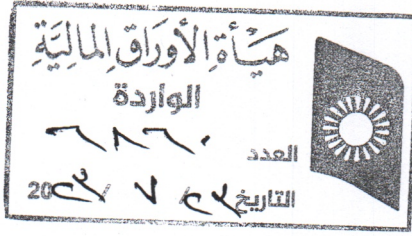 هَيْأَةِ الأَوْرَاقِ المَالِيَّةِ
الواردة
العدد ٦٨٦٠
التاريخ ٢٣/ ٧ / 20٢٣